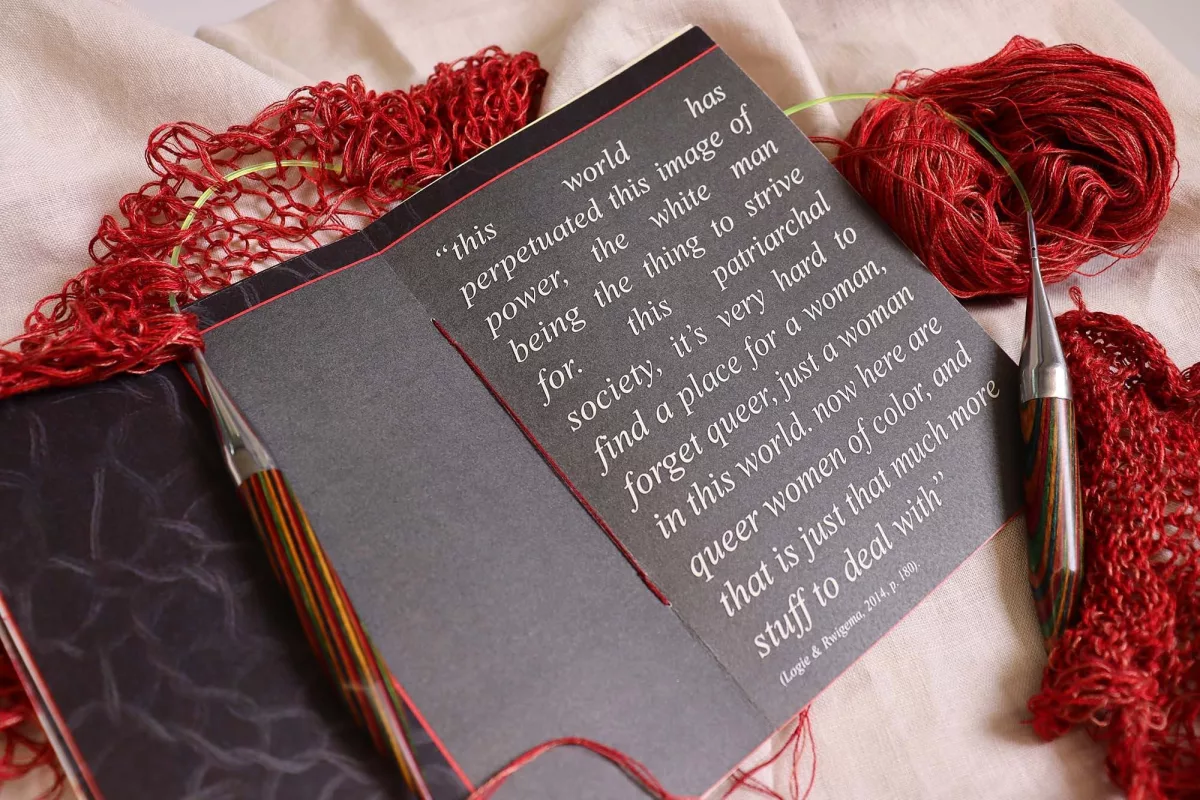 “this world has
perpetuated this image of
power, the white man
being the thing to strive
for. this patriarchal
society, it’s very hard to
find a place for a woman,
forget queer, just a woman
in this world. now here are
queer women of color, and
that is just that much more
stuff to deal with”
(Logie & Rwigema, 2014, p. 180).